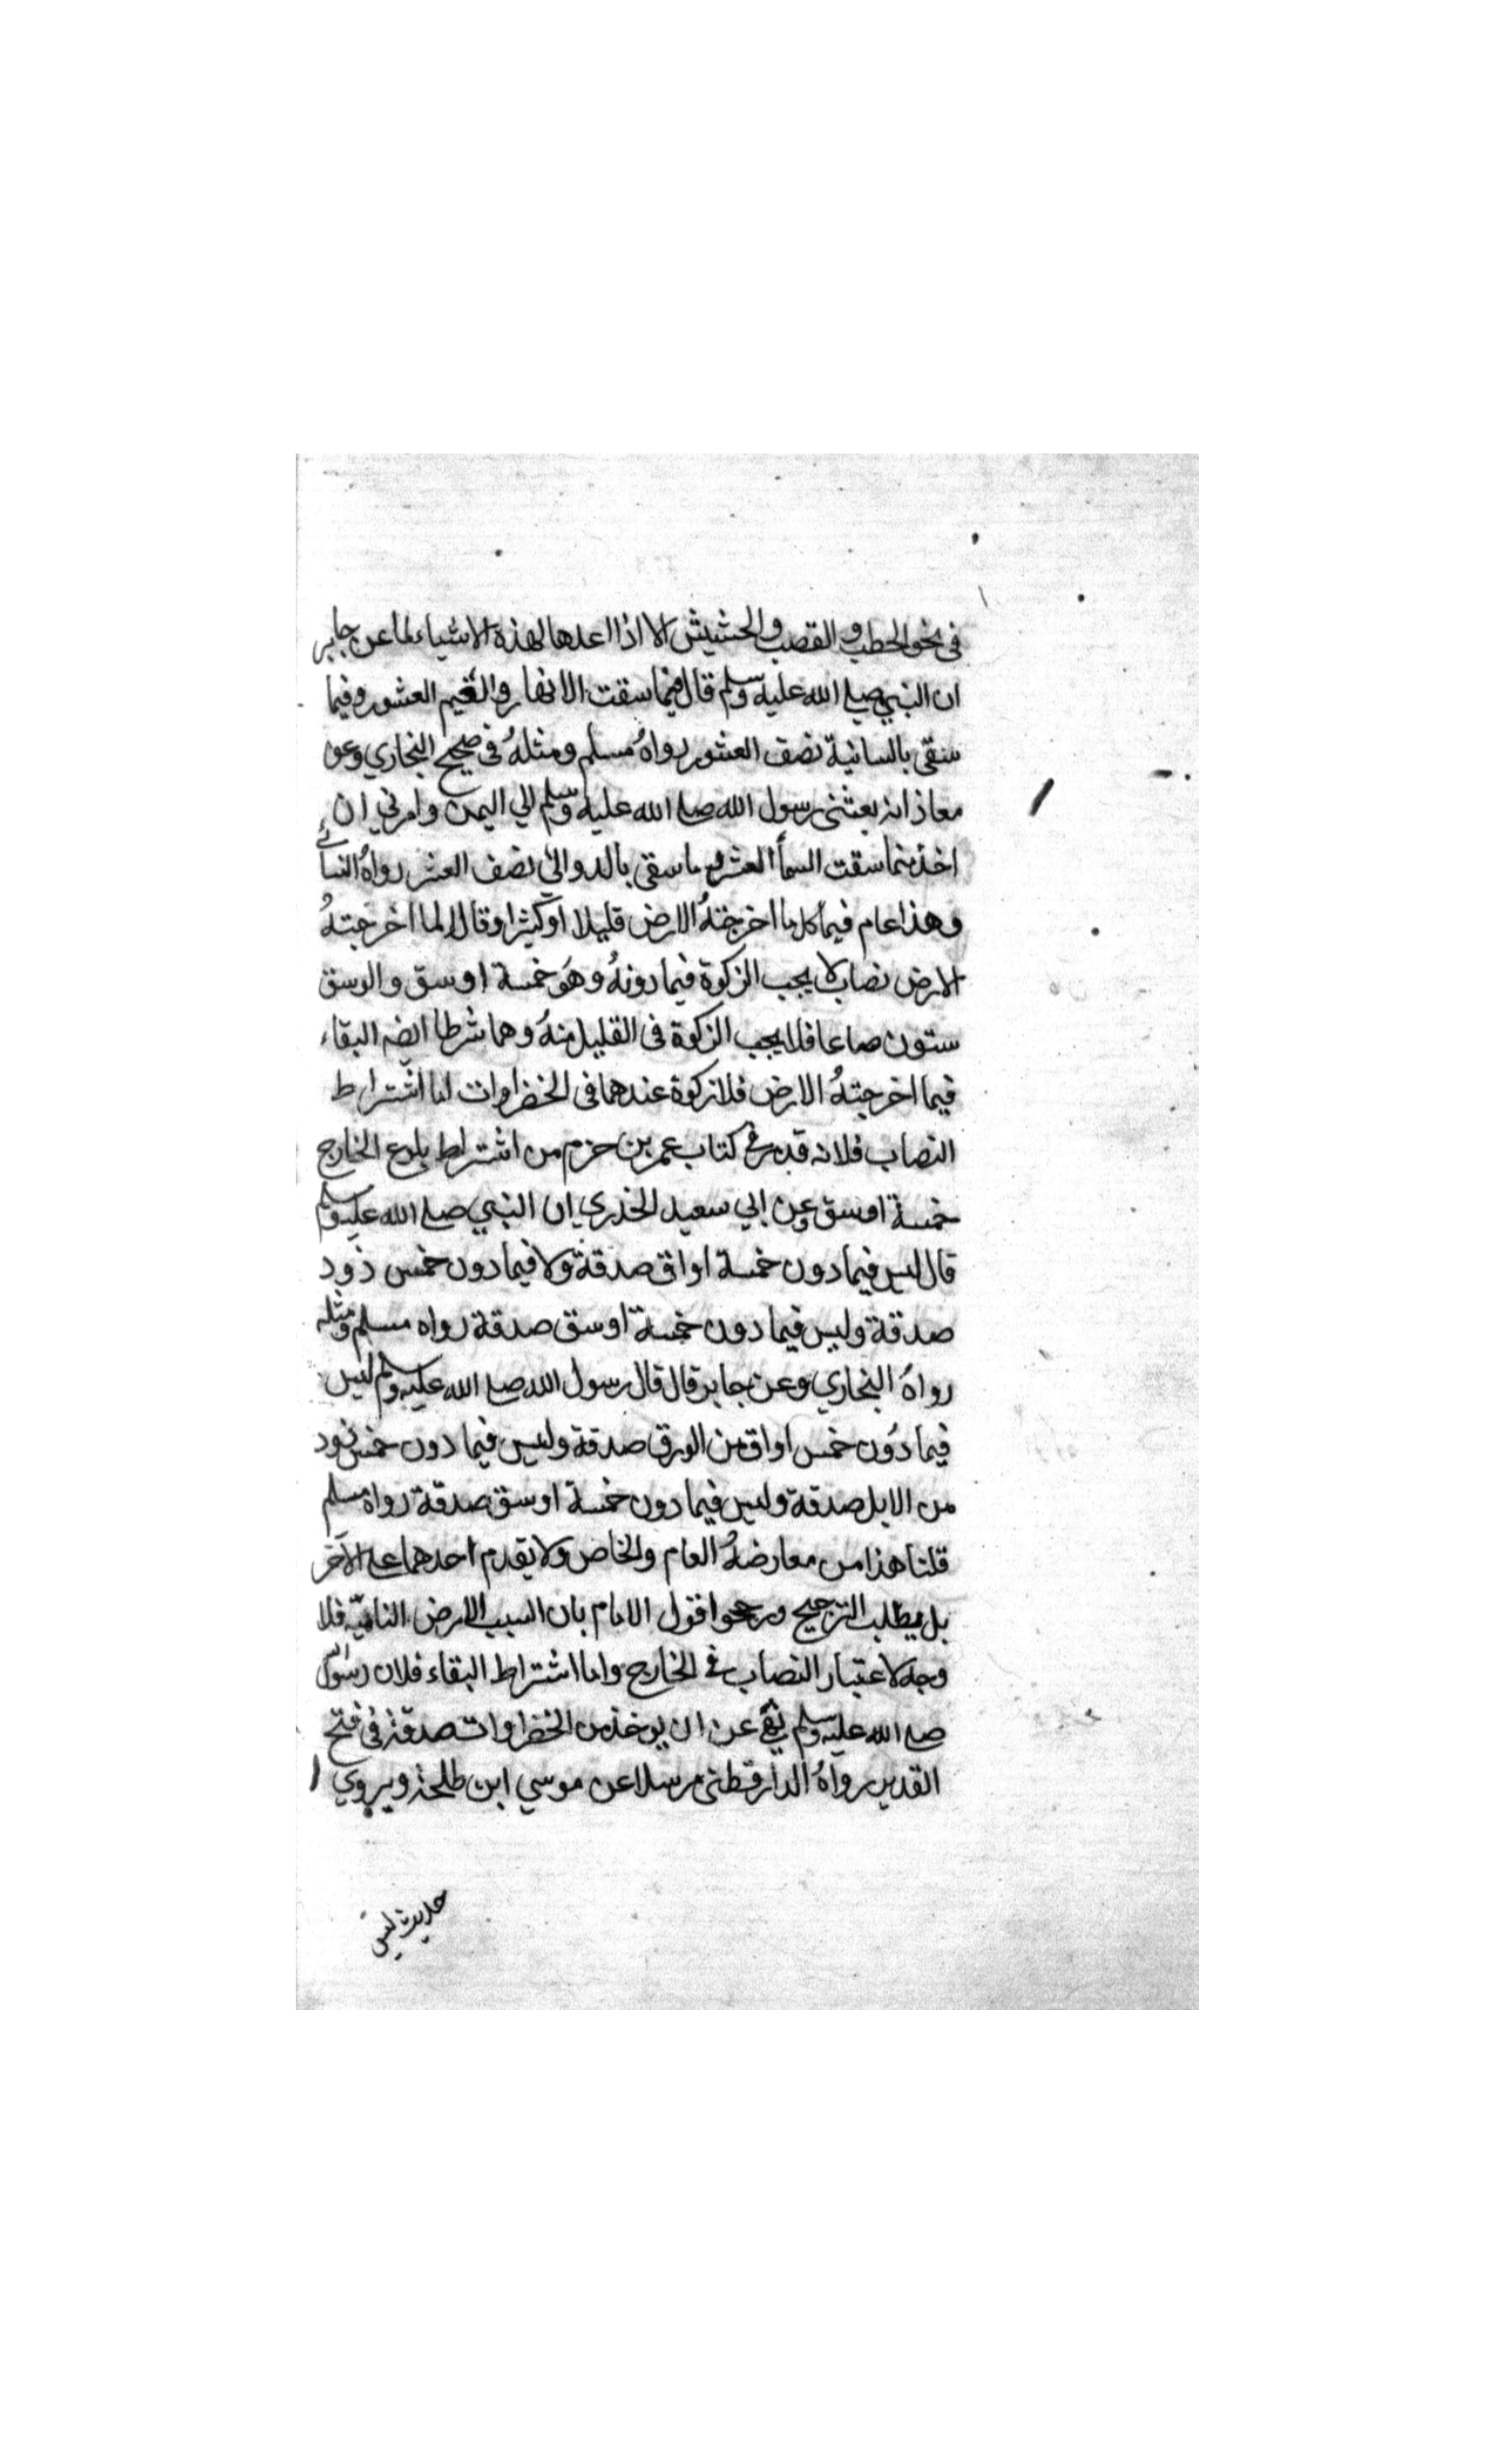 في نحو الحطب والقصب والحشيش الا اذا اعدها لهذه الاشياء لما عن جابر
ان النبي صلى الله عليه وسلم قال فيما سقت الانهار والغيم العشور وفيما
سقى بالسانية نصف العشور رواهُ مسلم ومثلهُ في صحيح البخاري وعن
معاذ انه بعثنى رسول الله صلى الله عليه وسلم الي اليمن وامرني ان
اخذ مما سقت السمأ العشر وما سقى بالدوالي نصف العشر رواهُ النسائي
وهذا عام فيما كل ما اخرجتهُ الارض قليلا او كثيرا وقالا لما اخرجتهُ
الارض نصاب لا يجب الزكوة فيما دونهُ وهو خمسة اوسق والوسق
ستون صاعا فلا يجب الزكوة فى القليل منهُ وهما شرطا ايضه البقاء
فيما اخرجتهُ الارض فلا زكوة عندهما فى الخضراوات اما اشتراط
النصاب فلانه قد مر في كتاب عمر بن حزم من اشتراط بلوغ الخارج
خمسة اوسق وعن ابي سعيد الخدري ان النبي صلى الله عليه وسلم
قال ليس فيما دون خمسة اواق صدقة ولا فيما دون خمس ذود
صدقة وليس فيما دون خمسة اوسق صدقة رواه مسلم ومثله
رواهُ البخاري وعن جابر قال قال رسول الله صلى الله عليه وسلم ليس
فيما دُون خمس اواق من الورق صدقة وليس فيما دون خمس ذود
من الابل صدقة وليس فيما دون خمسة اوسق صدقة رواه مسلم
قلنا هذا من معارضهُ العام والخاص ولا يقدم احدهما على الآخر
بل يطلب الترجيح ورجحوا قول الامام بان السبب الارض الناميّة فلا
وجه لاعتبار النصاب في الخارج واما اشتراط البقاء فلان رسول
صلى الله عليه وسلم نهى عن ان يوخذ من الخضراوات صدقة في فتح
القدير رواهُ الدارقطنى مرسلا عن موسي ابن طلحة ويروي
حديث ليس